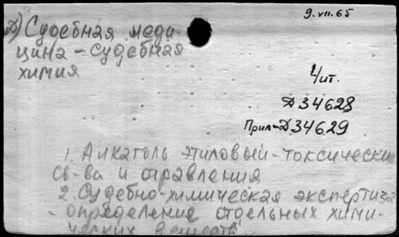 9.VII.65
Д) Судебная меди-
цина - судебная
химия
1/чит.
Д34628
Прил-Д34629
1. Алкаголь этиловый-токсически
св-ва и отравления
2. Судебно-химическая экспертиза
- определение отдельных хими-
ческих веществ